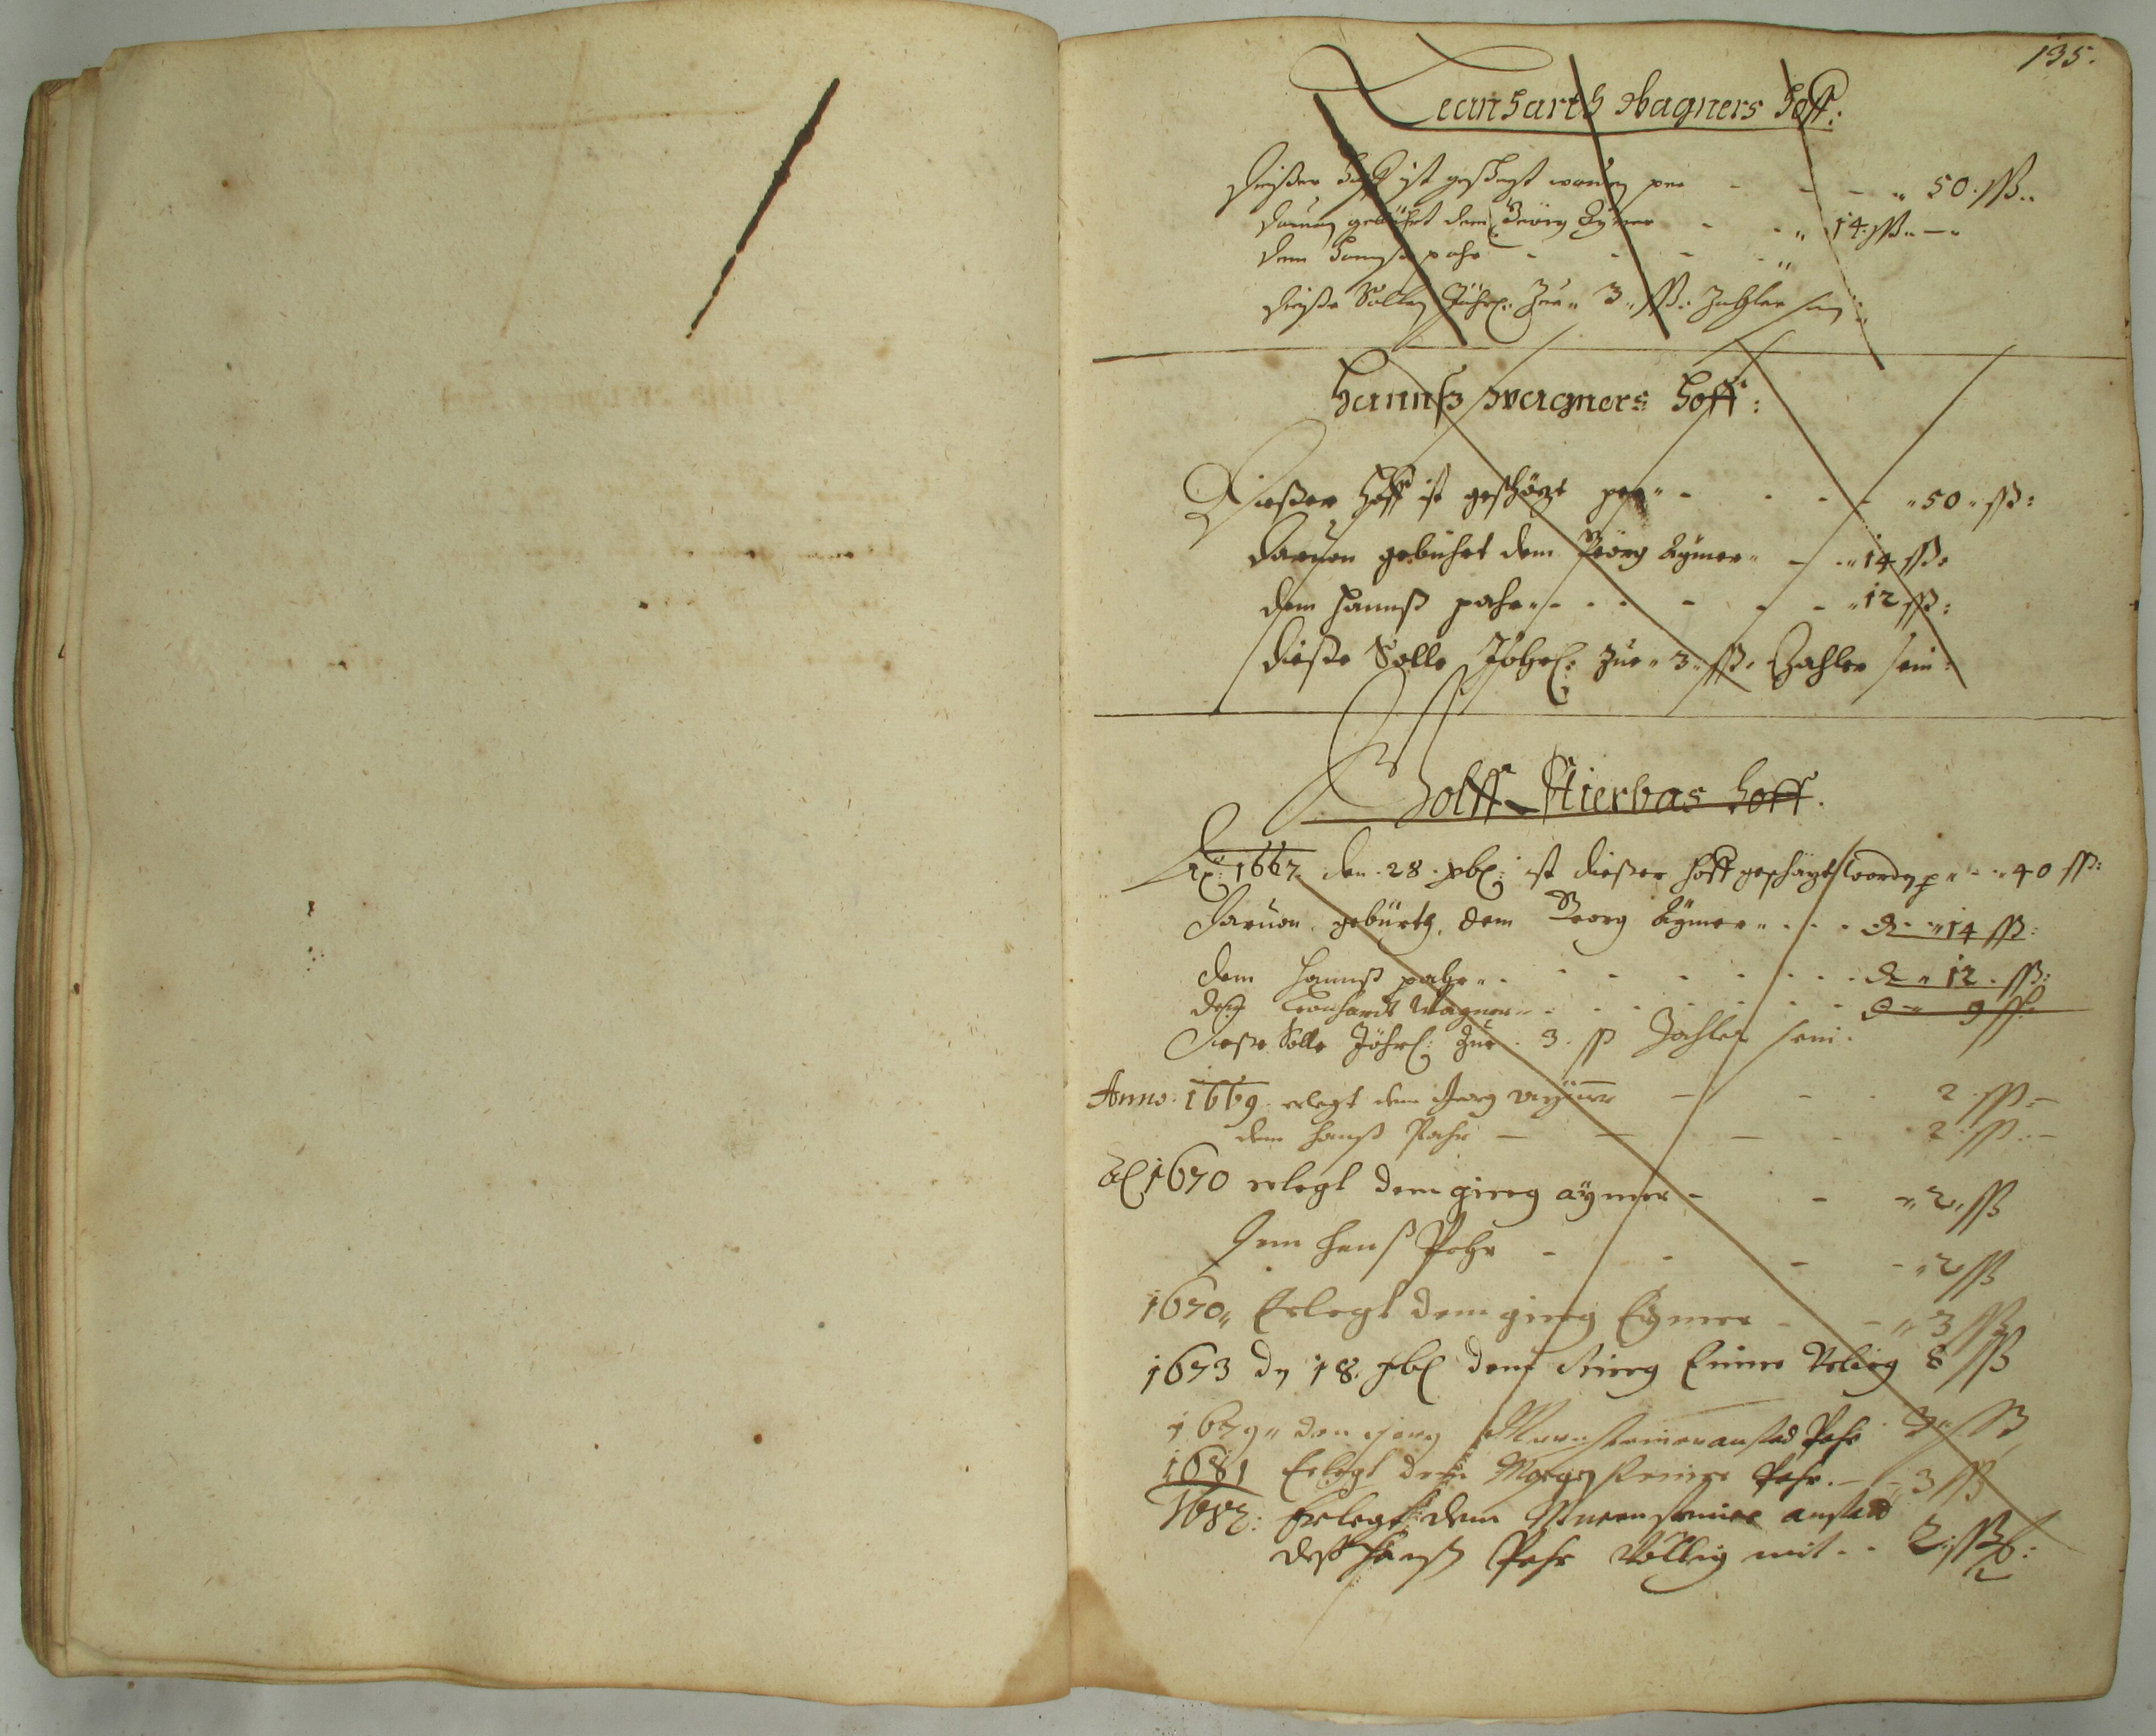 135.
Leanharth Wagners Hoff:
Dießer Hoff ist geschezt worden per - - - „ 50. ß..
Daruon gebührt dem Georg Aÿmer - - „ 14. ß.. —
Dem Hannß pahr - - - - „
Dieße Sollen Jährl: Zur „ 3 „ ß: Zahler sein
Hannß Wagners Hoff:
Dießer Hoff ist geschäzt per „ - - - - „ 50 „ ß:
Daruon gebührt dem Georg Aÿmer „ - - „ 14 ß:
dem Hannß pahr „ - - - - - - „ 12 ß:
dieße Solle Jährl: Zur „ 3 „ ß. Zahler sein:
Wolff Stierbas Hoff.
Ao: 1667 den 28 xbl: ist dießer Hoff geschäzt worden p „ - „ 40 ß:
Daruon gebürth dem Georg Aÿmer „ - - - „ 14 ß:
dem Hannß pahr „ - - - - - - - „ 12 . ß:
dem Leonhardt Wagner „ - - - - - - „ 9 ß:
Dieße Solle Jährl: Zur 3 . ß Zahler sein.
Anno 1669 erlegt dem Georg - - - 2 ß: —
dem Hanß Pahr — — — - 2 ß: —
1670 erlegt dem girg aÿmer - - - „ 2 „ ß
dem Hanß Pahr - - - - „ 2 ß
1670 „ Erlegt dem girg Eÿmer - - „ 3 ß
1673 dn 18. dem Eimer 8 ß
1679 „ den anstad Pahr
1681 Erlegt dem Pahr. - - 3 ß
1682: Erlegt dem anstad
deß Hanß Pahr Völlig mit - - 2 ß: